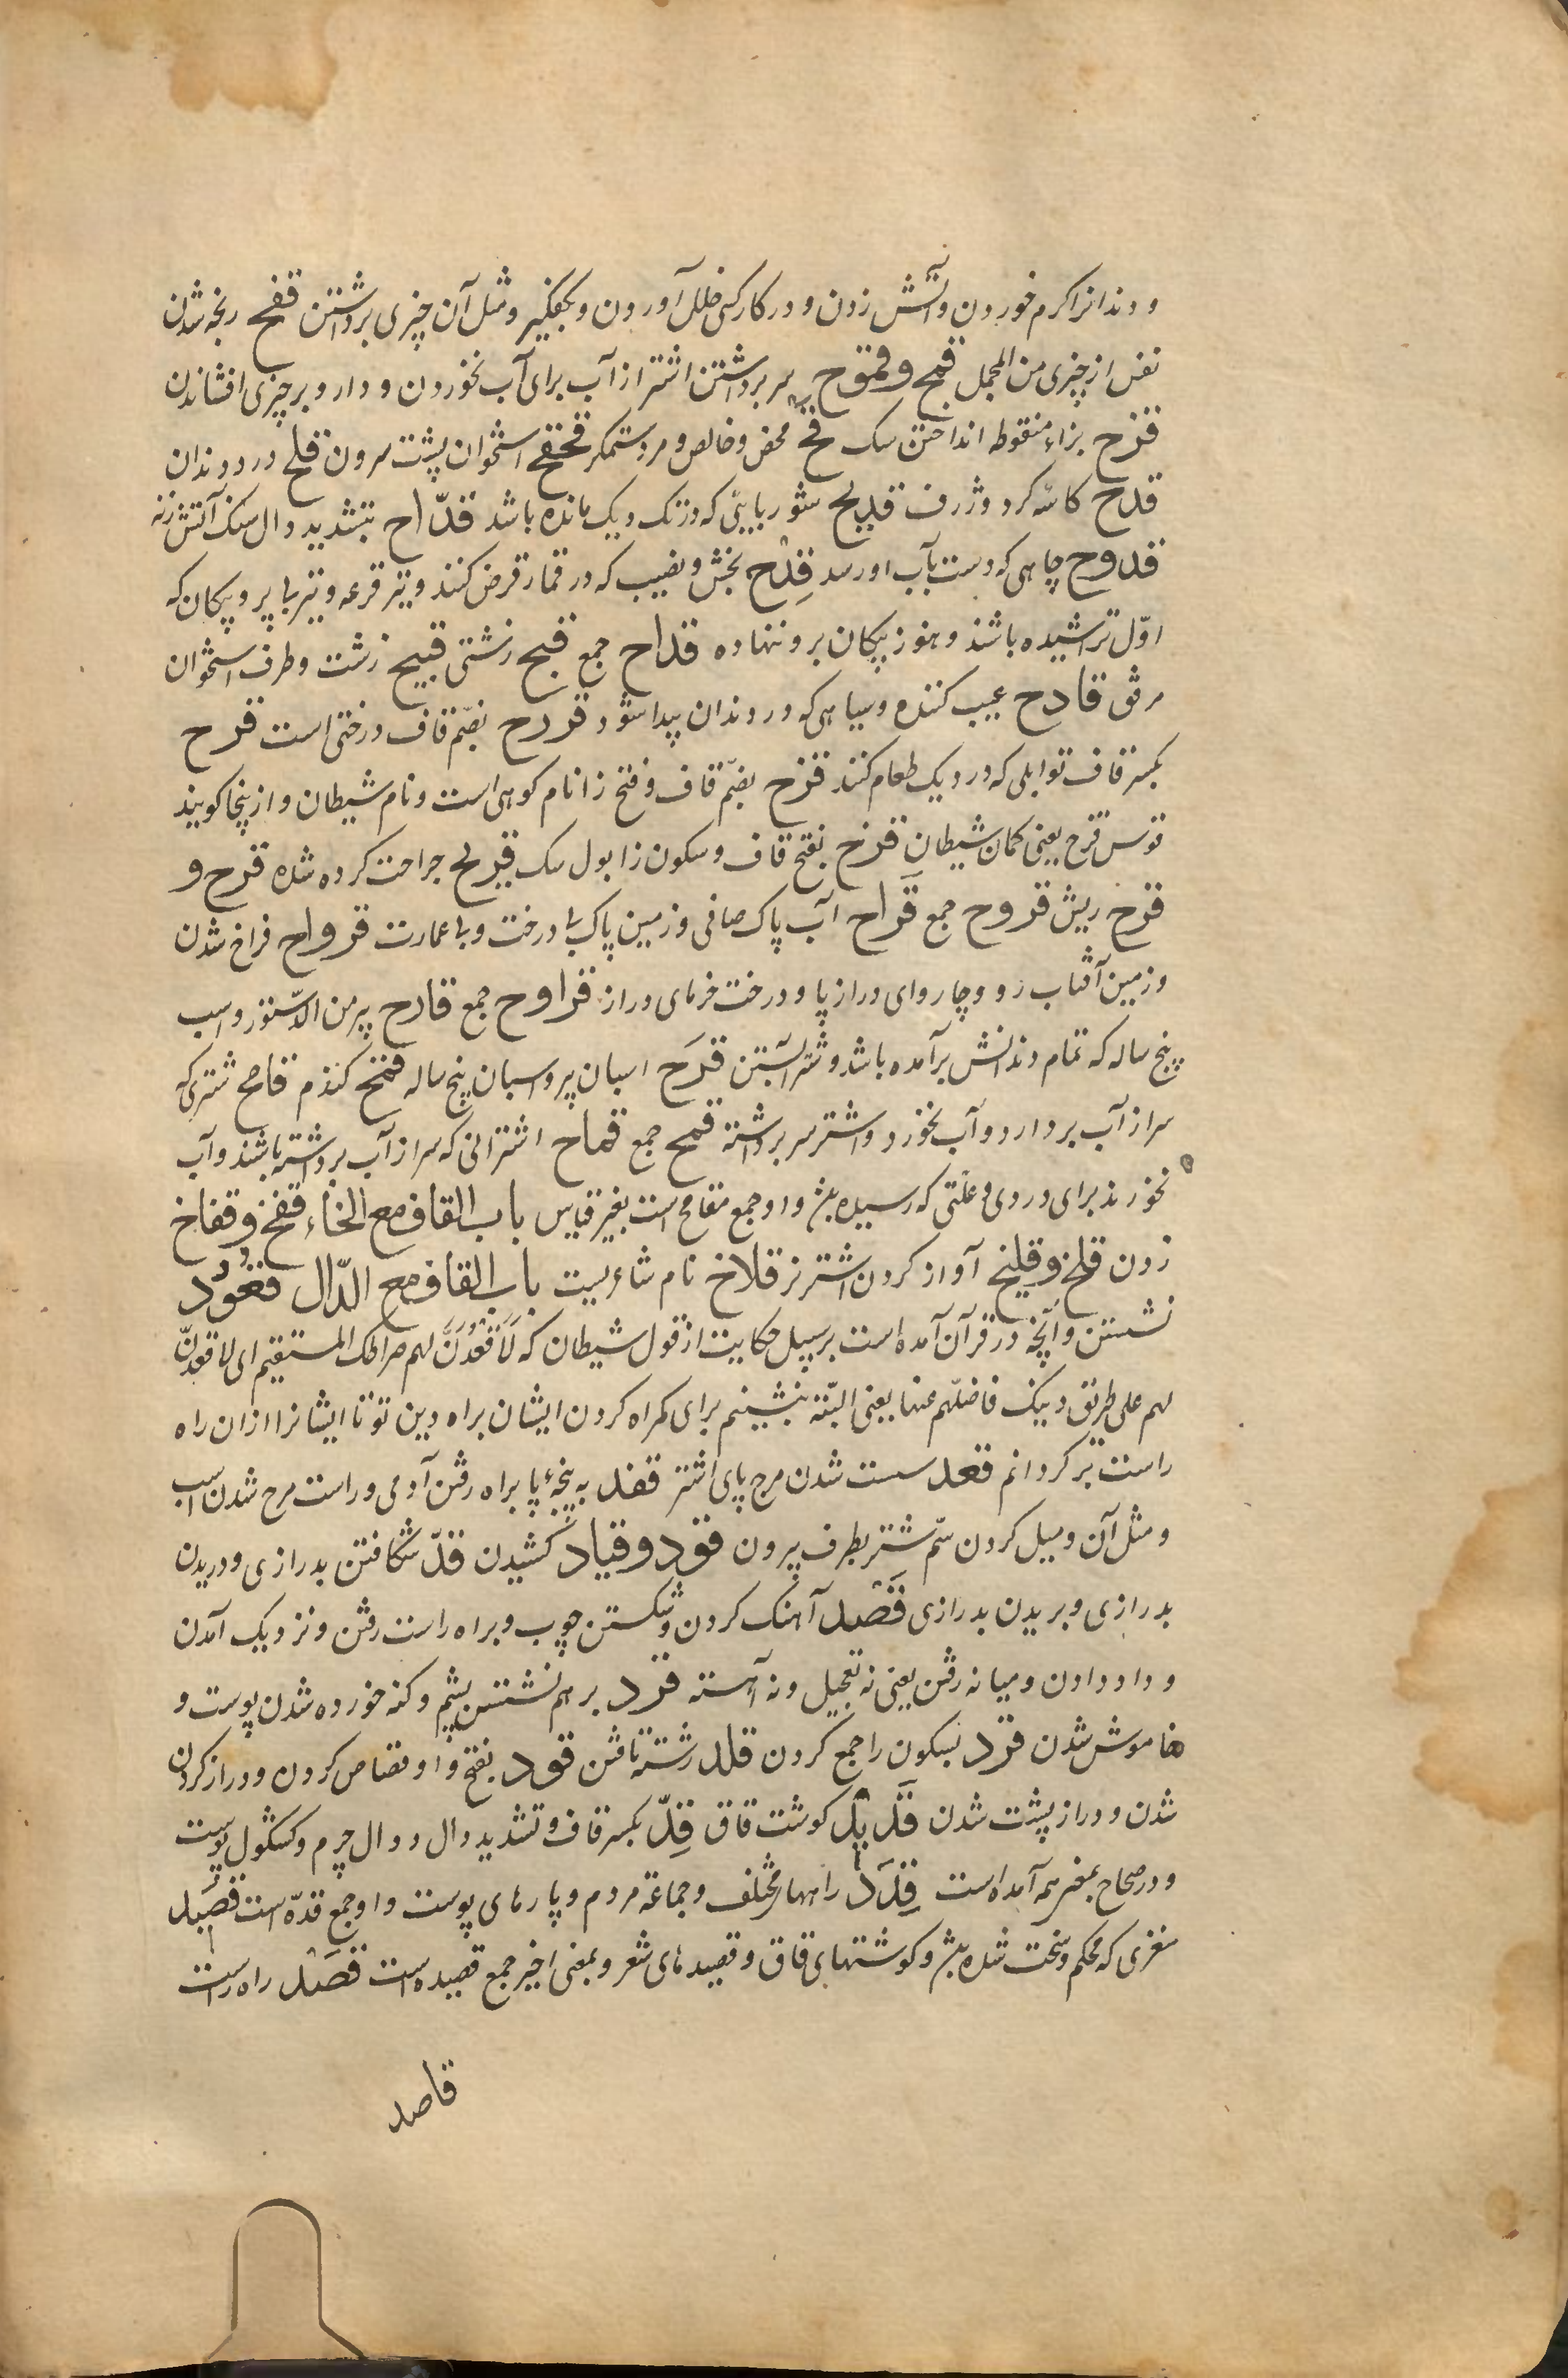 و دندانرا کرم خوردن و آتش زدن و در کار کسی خلل آوردن و بکفگیر و مثل آن چیزی برداشتن قفح رنجه شدن
نفس از چیزی من المجمل قمح و قموح سر برداشتن اشتر از آب برای آب نخوردن و دارو بر چیزی افشاندن
قزح بزاء منقوطه انداختن سک قح محض و خالص و مرد ستمکر قحقح استخوان پشت سرون قلح زردی دندان
قدح کاسه کرد و ژرف قدیح شوربایی که در تک دیک مانده باشد قدّاح بتشدید دال سنک آتش زنه
قدوح چاهی که دست بآب او رسد قِدْح بخش و نصیب که در قمار قرض کنند و تیر قرعه و تیر با پر و پیکان که
اوّل تراشیده باشند و هنوز پیکان بر و ننهاده قداح جمع قبح زشتی قبیح زشت و طرف استخوان
مرفق قادح عیب کننده و سیاهی که در دندان پیدا شود قردح بضمّ قاف درختی است قزح
بکسر قاف توابلی که در دیک طعام کنند قزح بضمّ قاف و فتح زا نام کوهی است و نام شیطان و ازینجا کویند
قوس قزح یعنی کمان شیطان قزح بفتح قاف و سکون زا بول سک قریح جراحت کرده شده قرح و
قرح ریش قروح جمع قَراح آب پاک صافی و زمین پاک بی درخت و بی عمارت قرواح فراخ شدن
و زمین آفتاب رو و چاروای دراز پا و درخت خرمای دراز قراوح جمع قارح پیر من الدستور و اسب
پنج ساله که تمام دندانش برآمده باشد و شتر آبستن قرَح اسبان پیر و اسبان پنج ساله قمح کندم قامح شتری که
سر از آب بردارد و آب نخورد و اشتر سر برداشته قمح جمع قماح اشترانی که سر از آب برداشته باشند و آب
نخورند برای دردی و علتی که رسیده باشد و او جمع مقامح است بغیر قیاس باب القاف مع الخاء قفخ و قفاخ
زدن قلخ و قلیخ آواز کردن اشتر نر قلاخ نام شاعریست باب القاف مع الدّال قعُوْد
نشستن و آنچه در قرآن آمده است بر سبیل حکایت از قول شیطان که لَاَقْعُدَنَّ لهم صراطک المستقیم ای لاقعدنّ
لهم علی طریق دینک فاضلّهم عنها یعنی البتّه بنشینم برای کمراه کردن ایشان براه دین تو تا ایشانرا ازان راه
راست بر کردانم قعد سست شدن مرج پای اشتر قفد به پنجهٔ پا براه رفتن آدمی و راست مرح شدن اسب
و مثل آن و میل کردن سّم شتر بطرف بیرون قود و قیاد کشیدن قدّ شکافتن بدرازی و دریدن
بدرازی و بریدن بدرازی قَصْد آهنک کردن و شکستن چوب و براه راست رفتن و نزدیک آمدن
و داد دادن و میانه رفتن یعنی نه تعجیل و نه آهسته قرد بر هم نشستن پشم و کنه خورده شدن پوست و
خاموش شدن قرد بسکون را جمع کردن قلد رشته تافتن قود بفتح واو قصاص کردن و دراز کردن
شدن و دراز پشت شدن قَدید کوشت قاق قِدّ بکسر قاف و تشدید دال دوال چرم و کشکول پوست
و در صحاح بمعنی همه آمده است قِدَد راهها مختلف و جماعة مردم و پارهای پوست و او جمع قدّه است قصید
مغزی که محکم و سخت شده باشد و کوشتهای قاق و قصیدهای شعر و بمعنی اخیر جمع قصیده است قصْد راه راست
قاصد